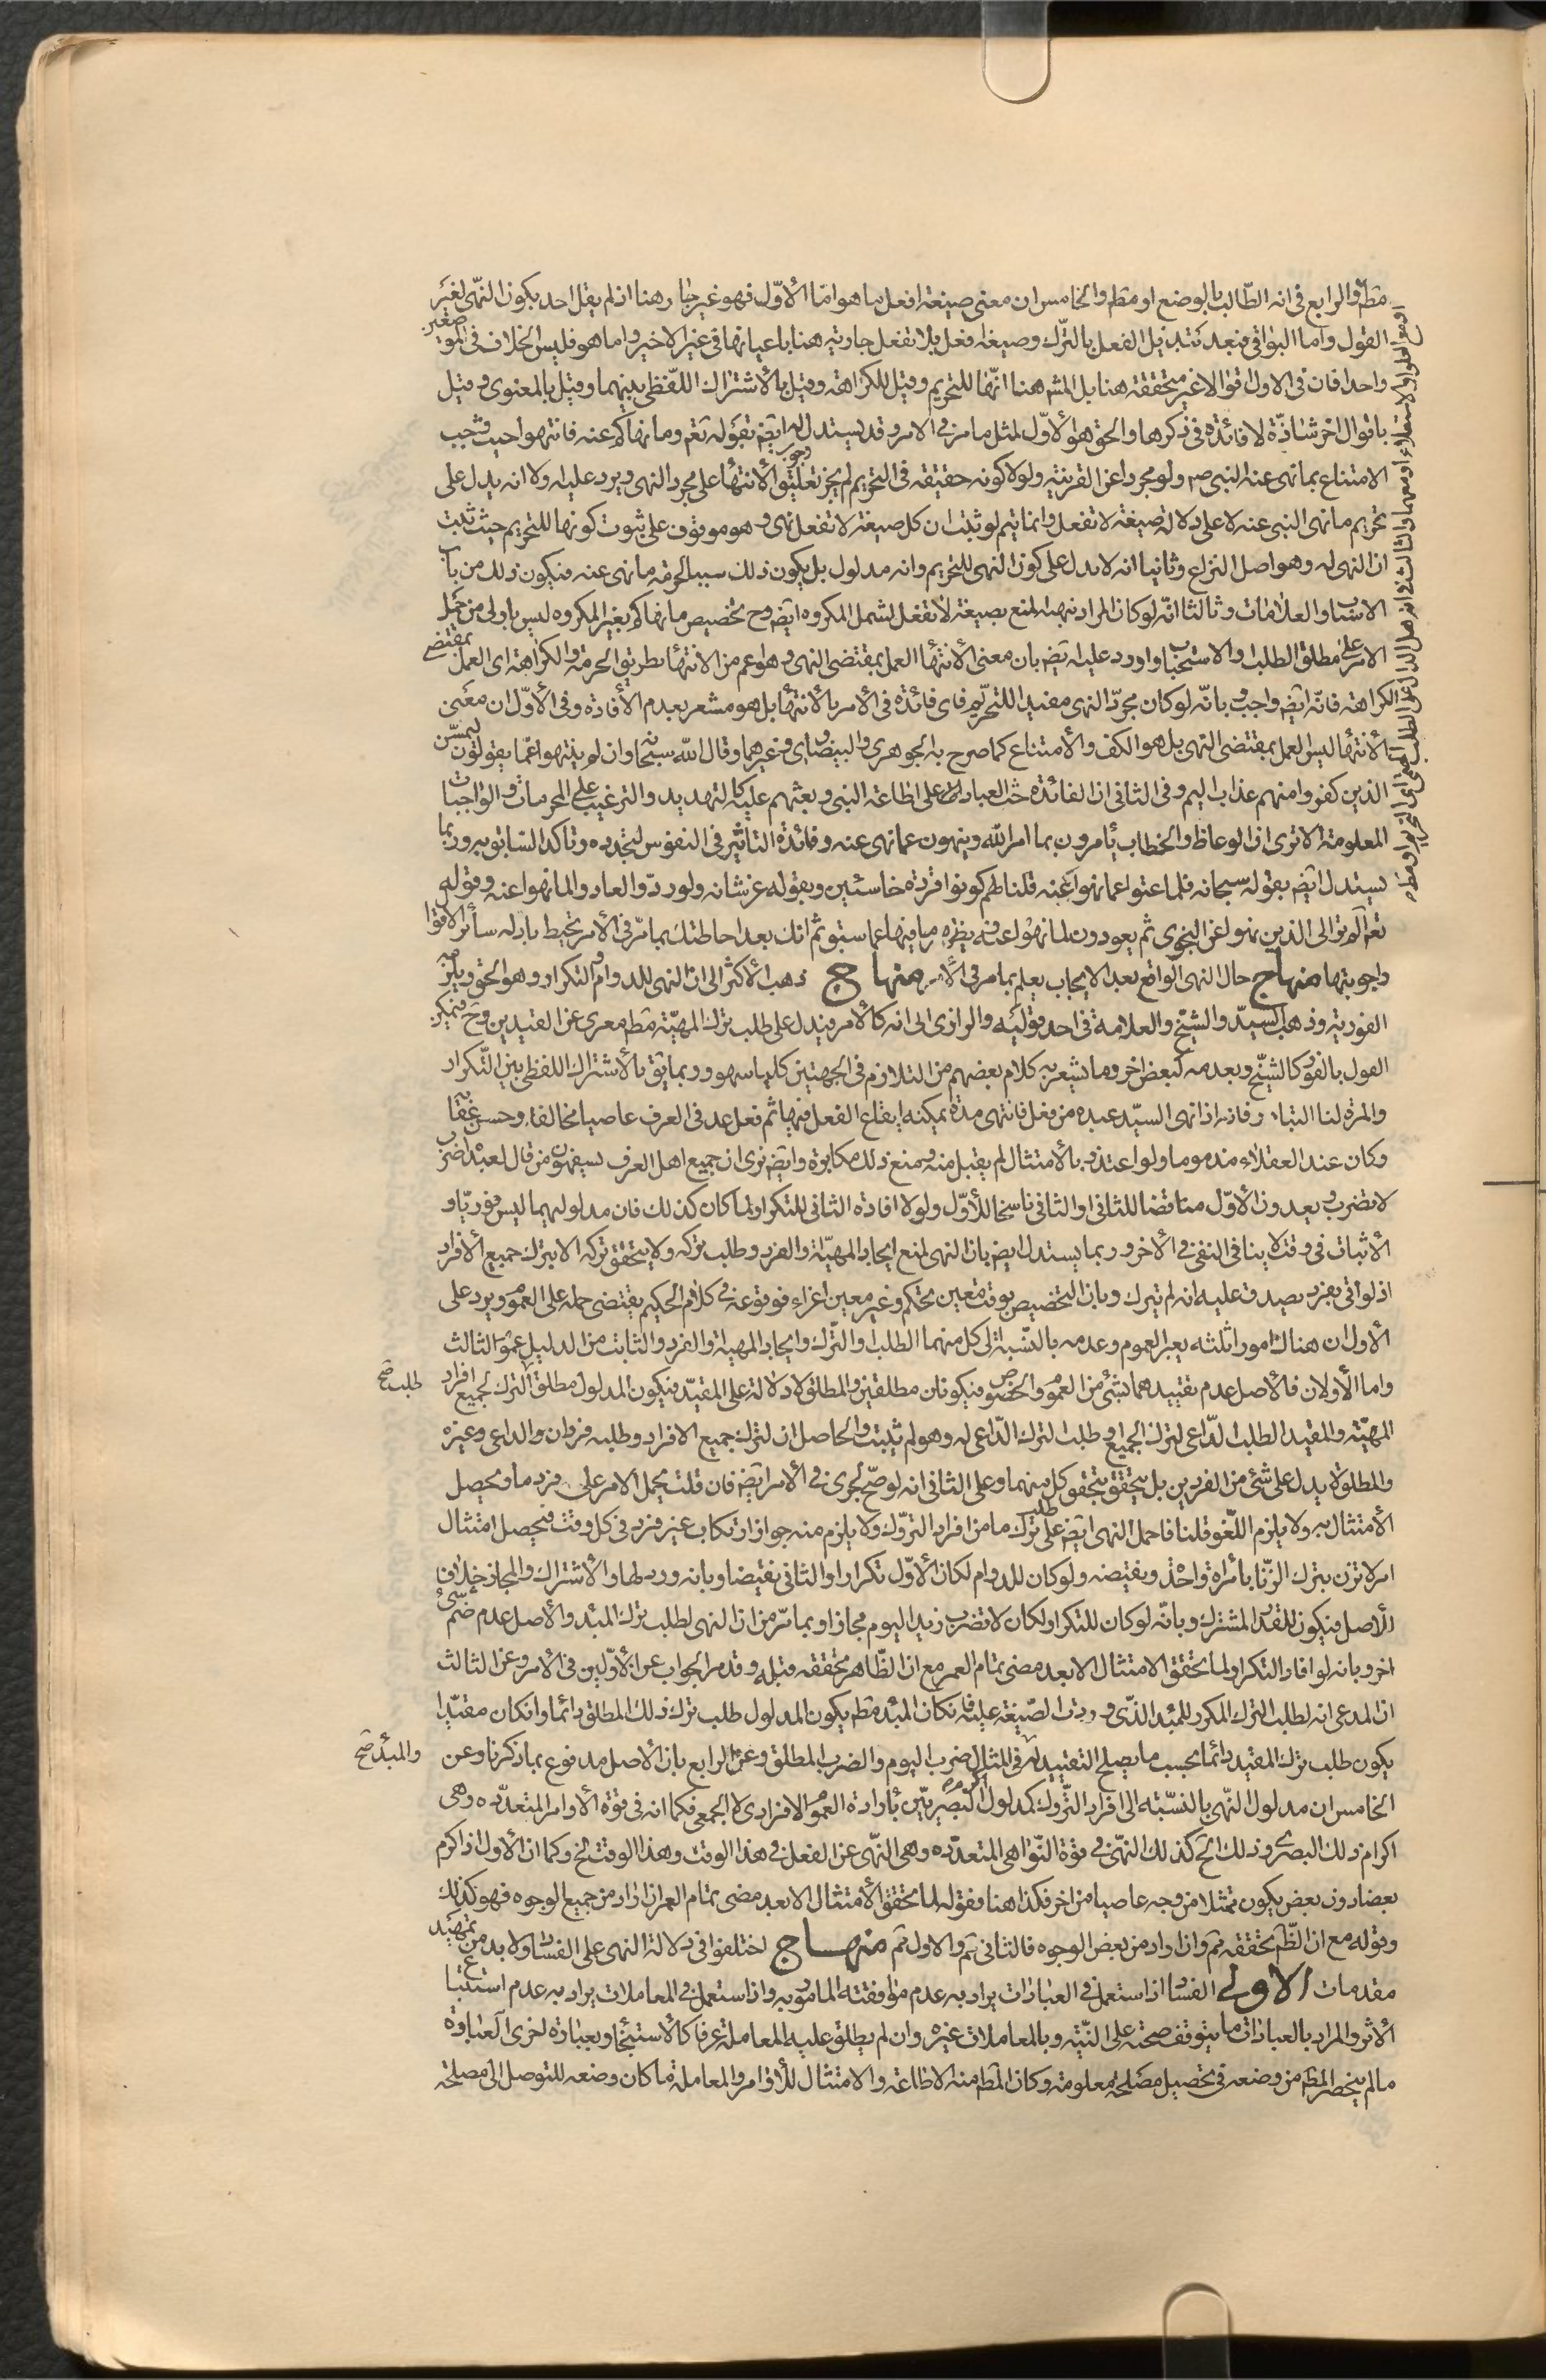 مطم والرابع في انه الطالب بالوضع او مطم والخامس ان معنى صيغة افعل ما هو اما الأوّل فهو غير جار هنا اذ لم يقل احد بكون النهى لغير
القول واما البواقى فبعد تبديل الفعل بالترك وصيغة افعل بلا تفعل جارية هنا باعيانها في غير الاخير واما هو فليس الخلاف في المو
واحدا فان في الاول اقوالا غير متحققة هنا بل المشه هنا انّها للتحريم وقيل للكراهة وقيل بالأشتراك اللّفظى بينهما وقيل بالمعنوى وقيل
باقوال اخر شاذّة لا فائدة في ذكرها والحق هو الأوّل لمثل ما مر في الامر وقد يستدل له ايضه بقوله تعم وما نهاكم عنه فانتهوا حيث وجب
الامتناع بما نهى عنه النبى ص ولو مجردا عن القرينة ولولا كونه حقيقة في التحريم لم يجز تعليق وجوب الأنتهاء على مجرد النهى ويرد عليه اولا انه يدل على
تحريم ما نهى النبى عنه لا على دلالة صيغة لا تفعل وانما يتم لو ثبت ان كل صيغة لا تفعل نهى وهو موقوف على ثبوت كونها للتحريم حيث ثبت
ان النهى له وهو اصل النزاع وثانيا انه لا يدل على كون النهى للتحريم وانه مدلول بل يكون ذلك سببا لحرمة ما نهى عنه فيكون ذلك من باب
الاسباب والعلامات وثالثا انّه لو كان المراد نهيه المنع بصيغة لا تفعل لشمل المكروه ايضه وح تخصيص ما نهاكم بغير المكروه ليس باولى من حمل
الامر على مطلق الطلب او الاستحباب واورد عليه ايضه بان معنى الأنتهاء العمل بمقتضى النهى وهو اعم من الانتهاء بطريق الحرمة والكراهة اى العمل بمقتضى
الكراهة فانّه ايضه واجب وبانّه لو كان مجرّد النهى مفيدا للتحريم فاى فائدة في الأمر بالأنتهاء بل هو مشعر بعدم الأفادة وفي الأوّل ان معنى
الأنتهاء ليس العمل بمقتضى النهى بل هو الكف والأمتناع كما صرح به الجوهرى والبيضاوى وغيرهما وقال الله سبحانه وان لم ينتهوا عمّا يقولون ليمسّن
الذين كفروا منهم عذاب اليم وفي الثاني ان الفائدة حث العباد على اطاعة النبى وبعثهم عليه كالتهديد والترغيب على المحرمات والواجبات
المعلومة الا ترى ان الوعاظ والخطاب يأمرون بما امر الله وينهون عما نهى عنه وفائدة التاثير في النفوس لتجدده وتاكد السابق به وربما
يستدل ايضه بقوله سبحانه فلما عتوا عما نهوا عنه قلنا لهم كونوا قردة خاسئين وبقوله عز شانه ولو ردّوا لعادوا لما نهوا عنه وقوله
تعم الم تر الى الذين نهوا عن النجوى ثم يعودون لما نهوا عنه ويظهر ما فيها عما سبق ثم انك بعد احاطتك بما مرّ في الأمر تحيط بادلة سائر الاقوا
واجوبتها منهاج حال النهى الواقع بعد الايجاب يعلم بما مر في الأمر منهاج ذهب الأكثر الى ان النهى للدوام والتكرار وهو الحق ويلزمه
الفورية وذهب السيد والشيخ والعلامة في احد قوليه والرازى الى انه كالأمر فيدل على طلب ترك المهيّة مطم معرى عن القيدين وح فيمكن
القول بالفور كالشيخ وبعدمه كبعض اخر وما يشعر به كلام بعضهم من التلازم في الجهتين كليا سهو وربما يق بالأشتراك اللفظى بين التكرار
والمرة لنا التبادر فانه اذا نهى السيّد عبده من فعل فانتهى مدة يمكنه ايقاع الفعل فيها ثم فعل عد في العرف عاصيا مخالفا وحسن عقابه
وكان عند العقلاء مذموما ولو اعتذر بالأمتثال لم يقبل منه ومنع ذلك مكابرة وايضه نرى ان جميع اهل العرف يسفهون من قال لعبده اضرب
لا تضرب ويعدون الأوّل مناقضا للثانى او الثانى ناسخا للأوّل ولولا افادة الثانى للتكرار لما كان كذلك فان مدلوليهما ليس فوريّا و
الأثبات في وقت لا ينافى النفى في الأخر وربما يستدل ايضه بان النهى لمنع ايجاد المهيّة والفرد وطلب تركه ولا يتحقق تركه الا بترك جميع الأفراد
اذ لو اتى بفرد يصدق عليه انه لم يترك وبان التخصيص بوقت معين تحكم وغير معين اغراء فوقوعه في كلام الحكيم يقتضى حمله على العموم ويرد على
الأول ان هناك امورا ثلثة يعبر العموم وعدمه بالنسبة الى كل منهما الطلب والترك وايجاد المهية والفرد والثابت من الدليل عموم الثالث
واما الأولان فالأصل عدم تقييدهما بشئ من العموم والخصوص فيكونان مطلقين والمطلق لا دلالة على المقيّد فيكون المدلول مطلق الترك لجميع افراد
طلب صح
المهيّة والمقيد الطلب الدّاعى لترك الجميع او طلب الترك الدّاعى له وهو لم يثبت والحاصل ان لترك جميع الافراد وطلبه فردان والداعى وغيره
والمطلق لا يدل على شئ من الفردين بل يتحقق بتحقق كل منهما وعلى الثانى انه لو صح لجرى في الأمر ايضه فان قلت يحمل الامر على فرد ما ويحصل
الأمتثال به ولا يلزم اللّغو قلنا فاحمل النهى ايضه على طلب ترك ما من افراد التروك ولا يلزم منه جواز ارتكاب غير فرد في كل وقت فيحصل امتثال
امر لا تزن بترك الزّنا بأمراة واحدة وبقيضه ولو كان للدوام لكان الأوّل تكرارا والثانى نقيضا وبانه ورد لهما والأشتراك والمجاز خلاف
الأصل فيكون للقدر المشترك وبانّه لو كان للتكرار لكان لا تضرب زيدا اليوم مجازا وبما مرّ من ان النهى لطلب ترك المبدء والأصل عدم ضم شئ
اخر وبانه لو افاد التكرار لما تحقق الامتثال الا بعد مضى تمام العمر مع ان الظّاهر تحققه قبله وقد مر الجواب عن الأوّلين في الأمر وعن الثالث
ان المدعى انه لطلب الترك المكرر للمبدء الذّى وردت الصّيغة عليه فان كان المبدء مطم يكون المدلول طلب ترك ذلك المطلق دائما وان كان مقيّدا
يكون طلب ترك المقيد دائما بحسب ما يصلح التقييد له في المثال ضرب اليوم والضرب المطلق وعن الرابع بان الاصل مدفوع بما ذكرنا وعن
والمبدء صح
الخامس ان مدلول النّهى بالنسبة الى افراد التّروك كمدلول اكرم البصريّين بأرادة العموم الافرادى لا الجمعى فكما انه في قوة الأوامر المتعدّدة وهى
اكرام ذلك البصرى وذلك الخ كذلك النّهى في قوة النّواهى المتعدّدة وهى النّهى عن الفعل في هذا الوقت وهذا الوقت الخ وكما ان الأول اذا اكرم
بعضا دون بعض يكون ممتثلا من وجه عاصيا من اخر فكذا هنا فقوله لما تحقق الأمتثال الا بعد مضى تمام العمر ان اراد من جميع الوجوه فهو كذلك
وقوله مع ان الظّم تحققه ثم وان اراد من بعض الوجوه فالثانى ثم والاول ثم منهاج اختلفوا في دلالة النهى على الفساد ولا بد من تمهيد
مقدمات الاولى الفساد اذا استعمل في العبادات يراد به عدم موافقته المامور به واذا استعمل في المعاملات يراد به عدم استتبا
الأثر والمراد بالعبادات ما يتوقف صحته على النّية وبالمعاملات غيره وان لم يطلق عليه المعاملة عرفا كالأستنجاء وبعبارة اخرى العبادة
ما لم ينحصر المقم من وضعه في تحصيل مصلحة معلومة وكان المقم منه الاطاعة والامتثال للأوامر والمعاملة ما كان وضعه للتوصل الى مصلحة